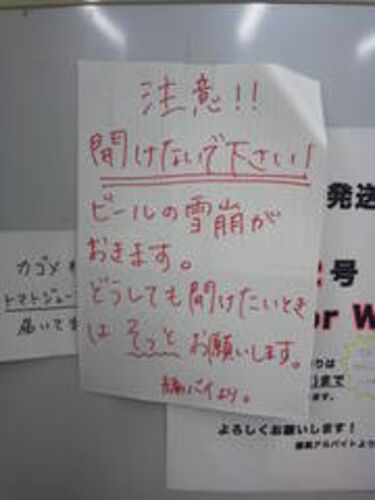 注意!!
開けないで下さい!
ビールの雪崩が
おきます。
どうしても開けたいとき
は そっと お願いします。
編バイより。
カゴメ
トマトジュー
届いてま
発送
号
or W
りは
まで
ます。
よろしくお願いします!
編集アルバイトより